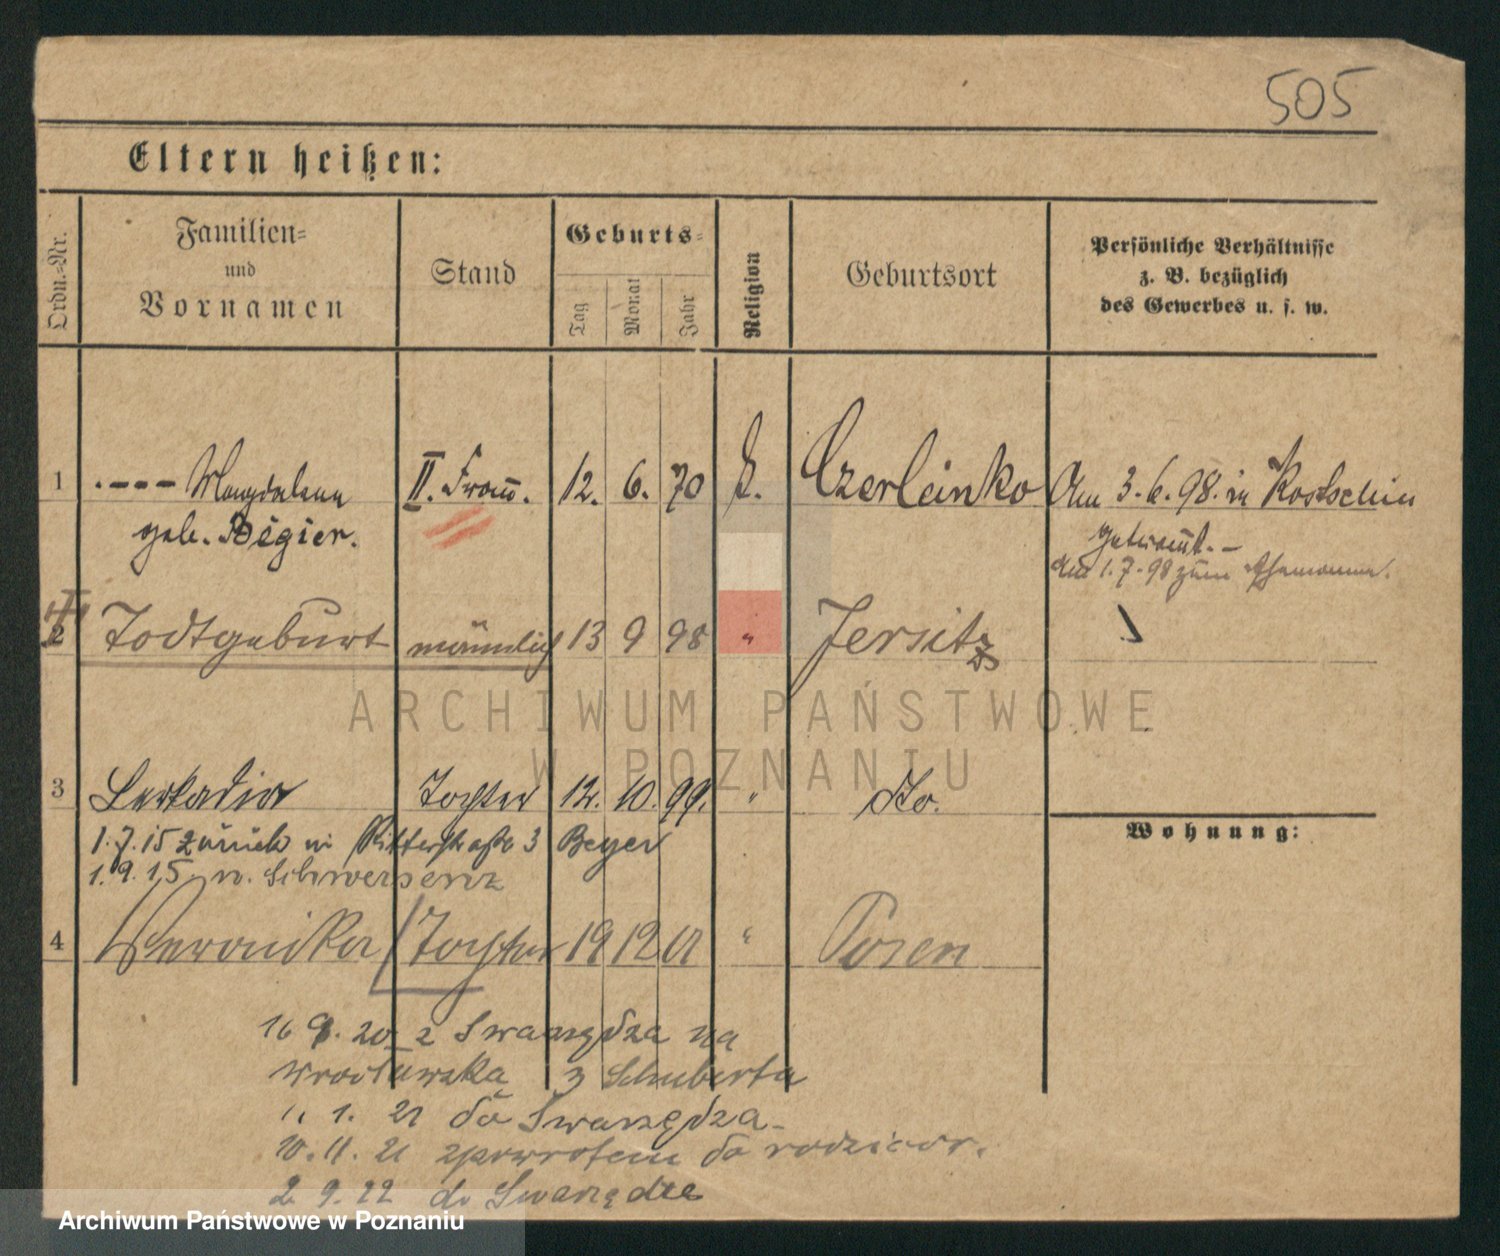 505
Eltern heißen:
Ordn.-Nr.
Familien- und Vornamen
Stand
Geburts-
Tag
Monat
Jahr
Religion
Geburtsort
Persönliche Verhältnisse
z. B. bezüglich
des Gewerbes u. s. w.
1 .--- Magdalena II. Frau. 12. 6. 70 k. Czerleinko Am 3.6.98. in Kostschin
geb. Régier. getraut.-
am 1.7.98 zum Ehemanne.
2 Todtgeburt männlich 13 9 98 " Jersitz
3 Leokadia Tochter 12. 10. 99. " Do.
1.7.15 zurück in Ritterstraße 3 Beyer
1.9.15. n. Schwersenz
Wohnung:
4 Weronika Tochter 19 12 01 " Posen
16 9. 20 z Swarzędza na
wrocławska 3 Schuberta
1. 1. 21 do Swarzędza-
10. 11. 21 zpowrotem do rodziców.
2. 9. 22 do Swarzędza
ARCHIWUM PAŃSTWOWE
W POZNANIU
Archiwum Państwowe w Poznaniu